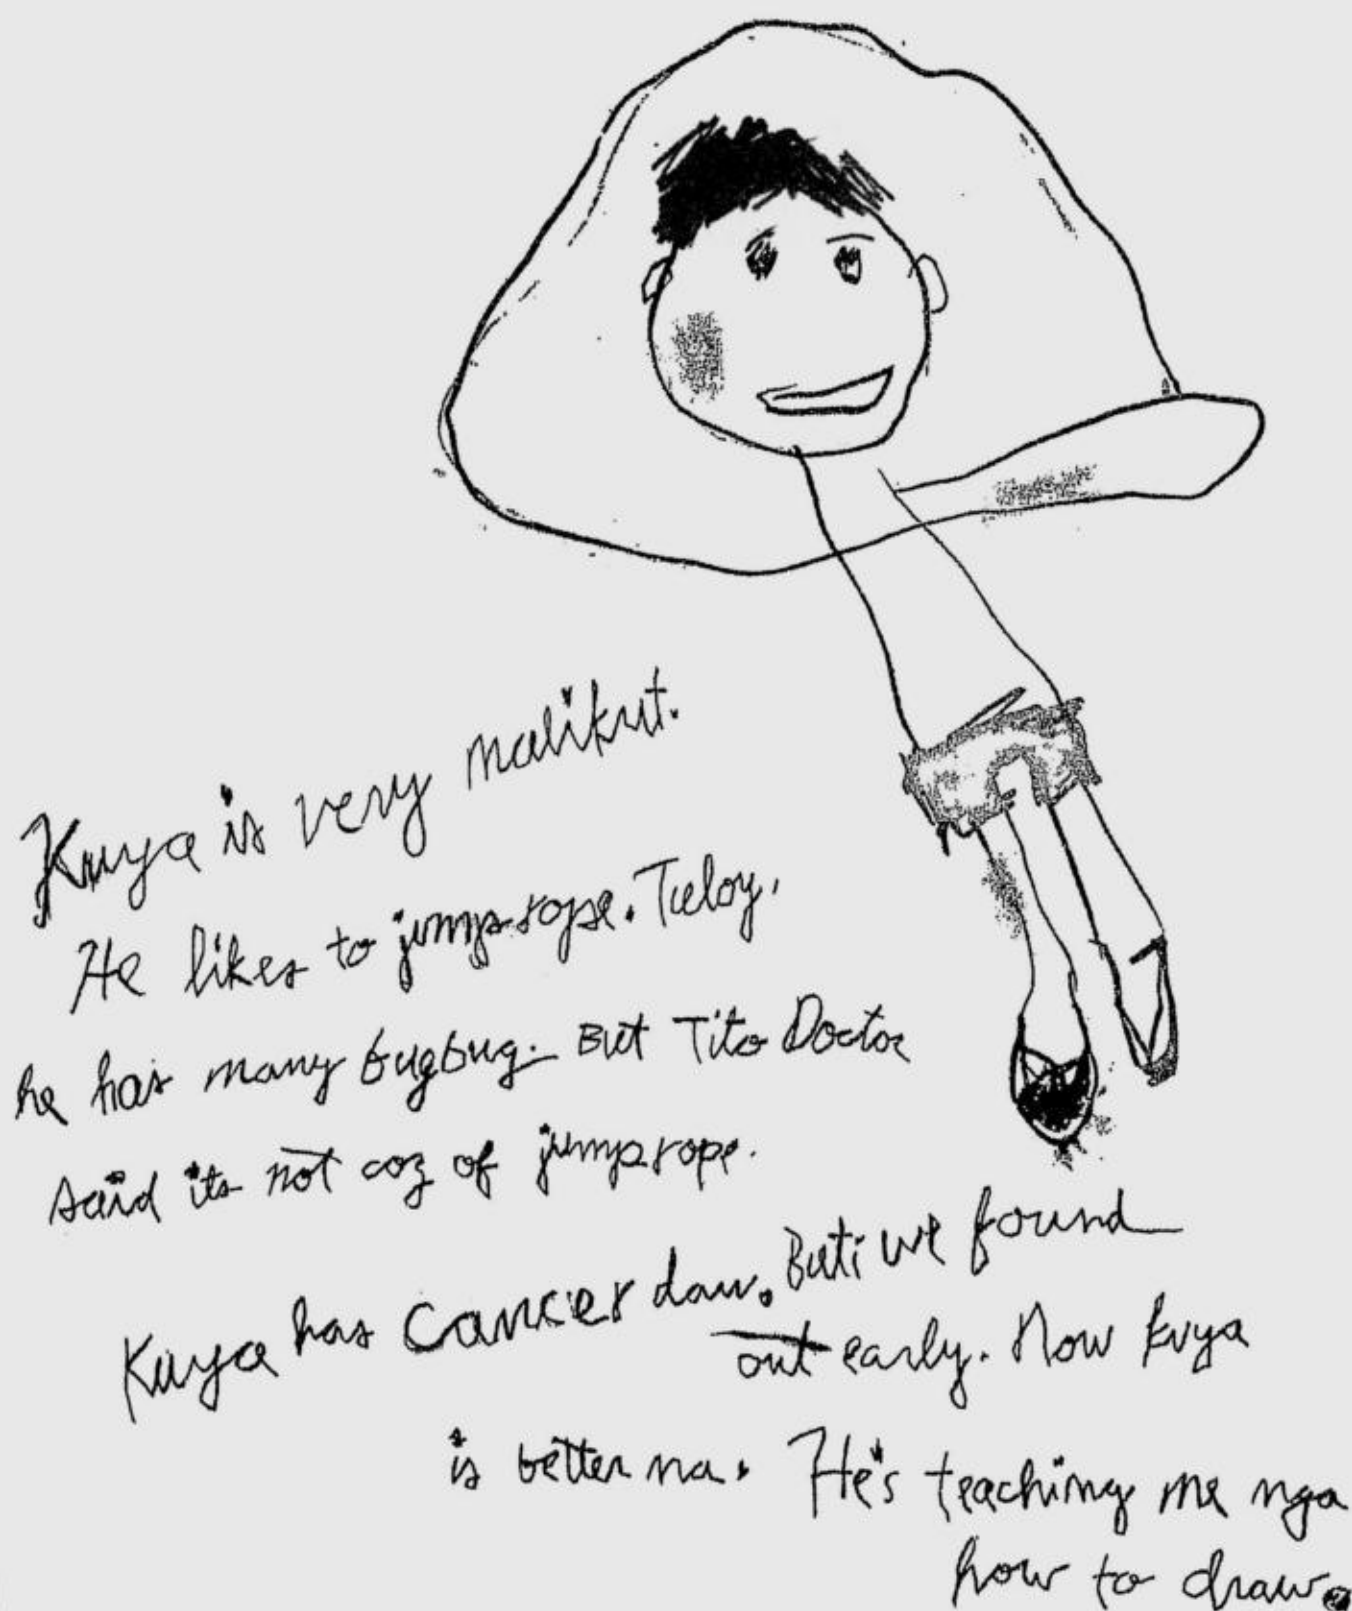 Kuya is very malikut.
He likes to jumprope. Tuloy,
he has many bugbug. But Tito Doctor
said its not coz of jumprope.
Kuya has cancer daw. Buti we found
out early. Now kuya
is better na. He's teaching me nga
how to draw.